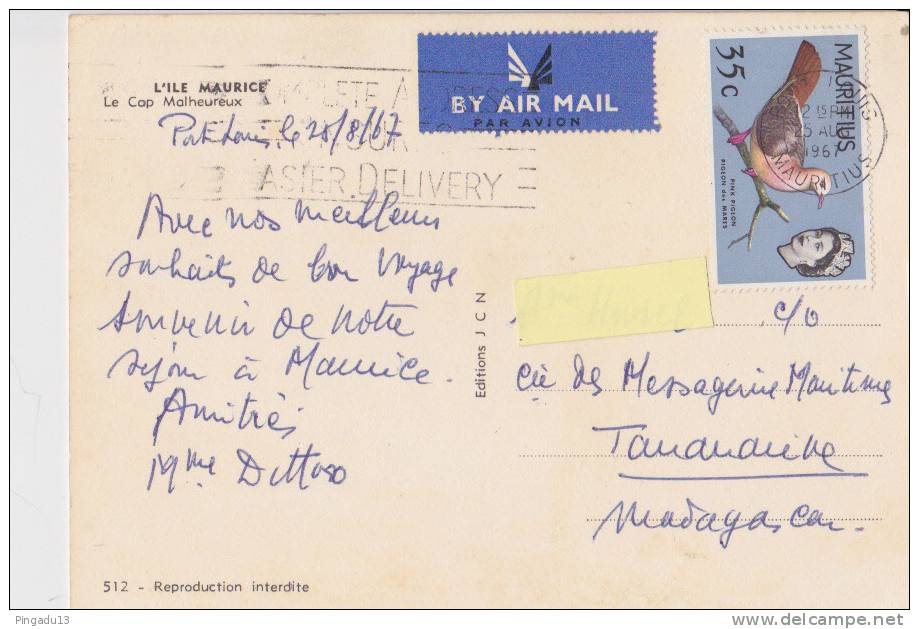 L'ILE MAURICE
Le Cap Malheureux
Port-Louis, le 25/8/67
Avec nos meilleurs
souhaits de bon voyage
souvenir de notre
séjour à Maurice.
Amitiés
Mme
512 - Reproduction interdite
Editions J C N
BY AIR MAIL
PAR AVION
COMPLETE ADDRESS
DELIVERY
MAURITIUS
35c
PINK PIGEON
PIGEON des MARES
25 AU
1967
MAURITIUS
c/o
Cie des Messagerie Maritime
Tananarive
Madagascar
Pingadu13
delcampe.net